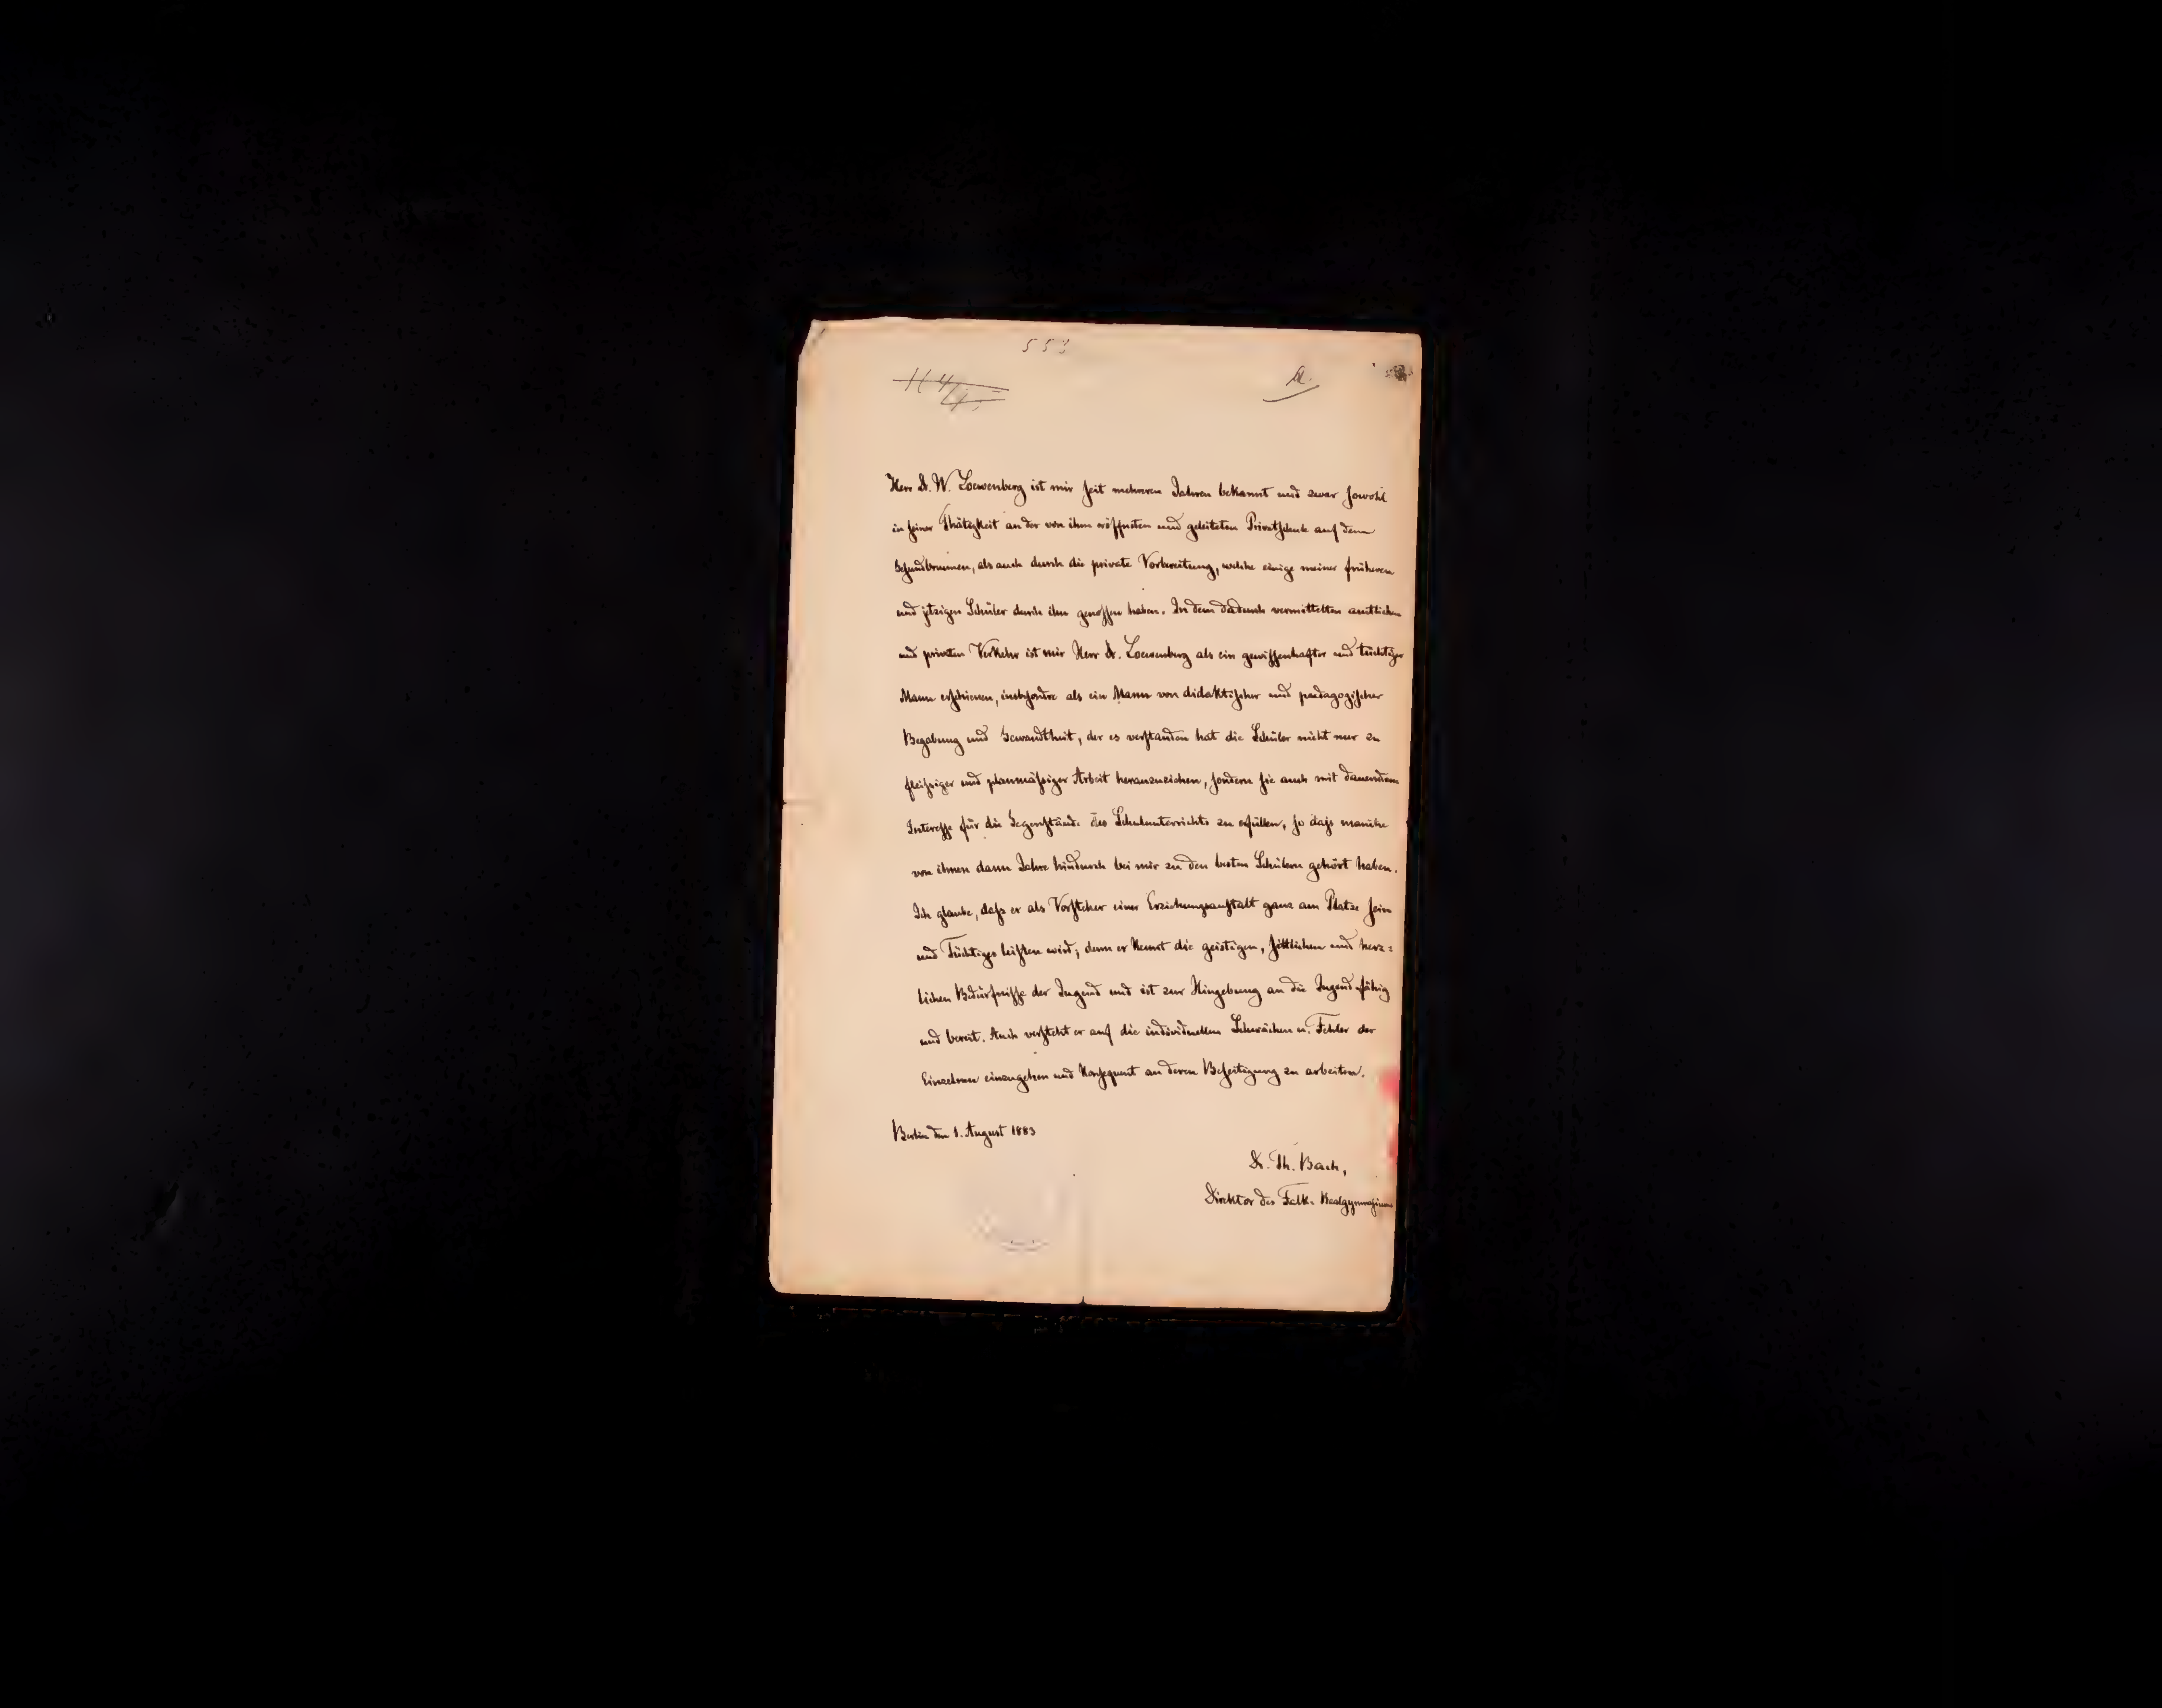 553
a.
Herr Dr. W. Loewenberg ist mir seit mehreren Jahren bekannt und zwar sowohl
in seiner Thätigkeit an der von ihm eröffneten und geleiteten Privatschule auf dem
Gesundbrunnen, als auch durch die private Vorbereitung, welche einige meiner früheren
und jetzigen Schüler durch ihn genossen haben. In dem dadurch vermittelten amtlichen
und privaten Verkehr ist mir Herr Dr. Loewenberg als ein gewissenhafter und tüchtiger
Mann erschienen, insbesondre als ein Mann von didaktischer und paedagogischer
Begabung und Gewandtheit, der es verstanden hat die Schüler nicht nur zu
fleissiger und planmässiger Arbeit heranzuziehen, sondern sie auch mit dauerndem
Interesse für die Gegenstände des Schulunterrichts zu erfüllen, so dass manche
von ihnen dann Jahre hindurch bei mir zu den besten Schülern gehört haben.
Ich glaube, dass er als Vorsteher einer Erziehungsanstalt ganz am Platze sein
und Tüchtiges leisten wird; denn er kennt die geistigen, sittlichen und herz=
lichen Bedürfnisse der Jugend und ist zur Hingebung an die Jugend fähig
und bereit. Auch versteht er auf die individuellen Schwächen u. Fehler der
Einzelnen einzugehen und konsequent an deren Beseitigung zu arbeiten.
Berlin den 1. August 1883
Dr. Th. Bach,
Direktor des Falk-Realgymnasiums